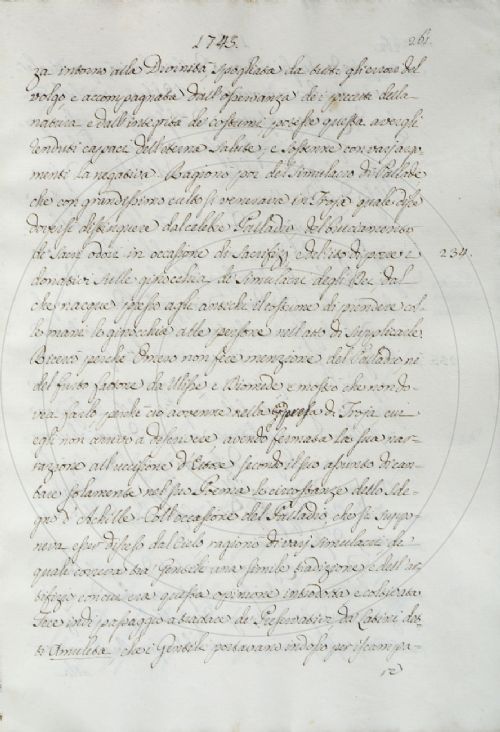 1745. 261.
za intorno alla Divinità spogliata da tutti gli errori del
volgo e accompagnata dall'osservanza de i precetti della
natura e dall'integrità de' costumi potesse questa avergli
renduti capaci dell'eterna salute, e sostenne con varj argo-
menti la negativa. Ragionò poi del Simulacro di Pallade
che con grandissimo culto si venerava in Troja quale disse
doversi distinguere dal celebre Palladio del bruciamento
di sani odori in occasione di Sacrifizj e dell'uso di porre i
donativi sulle ginocchia de' Simulacri degli Dei dal 234.
che nacque presso agli antichi il costume di prendere col-
le mani le ginocchia alle persone nell'atto di supplicarle.
Ricercò perchè Omero non fece menzione del Palladio, nè
del furto fattone da Ulisse e Diomede e mostrò che non do-
vea farlo poichè ciò avvenne nella presa di Troja cui
egli non arrivò a descrivere avendo fermata la sua nar-
razione all'uccisione d'Ettore secondo il suo assunto di can-
tare solamente nel suo Poema le circostanze dello Sde-
gno d'Achille. Coll'occasione del Palladio che si suppo-
neva esser disceso dal Cielo ragionò di varj Simulacri de'
quali correva tra Gentili una simile tradizione e dell'ar-
tifizio con cui era questa opinione introdotta e coltivata.
Fece indi passaggio a trattare de' Preservativi da Latini det-
ti Amuleta che i Gentili portavano indosso per iscampa-
re